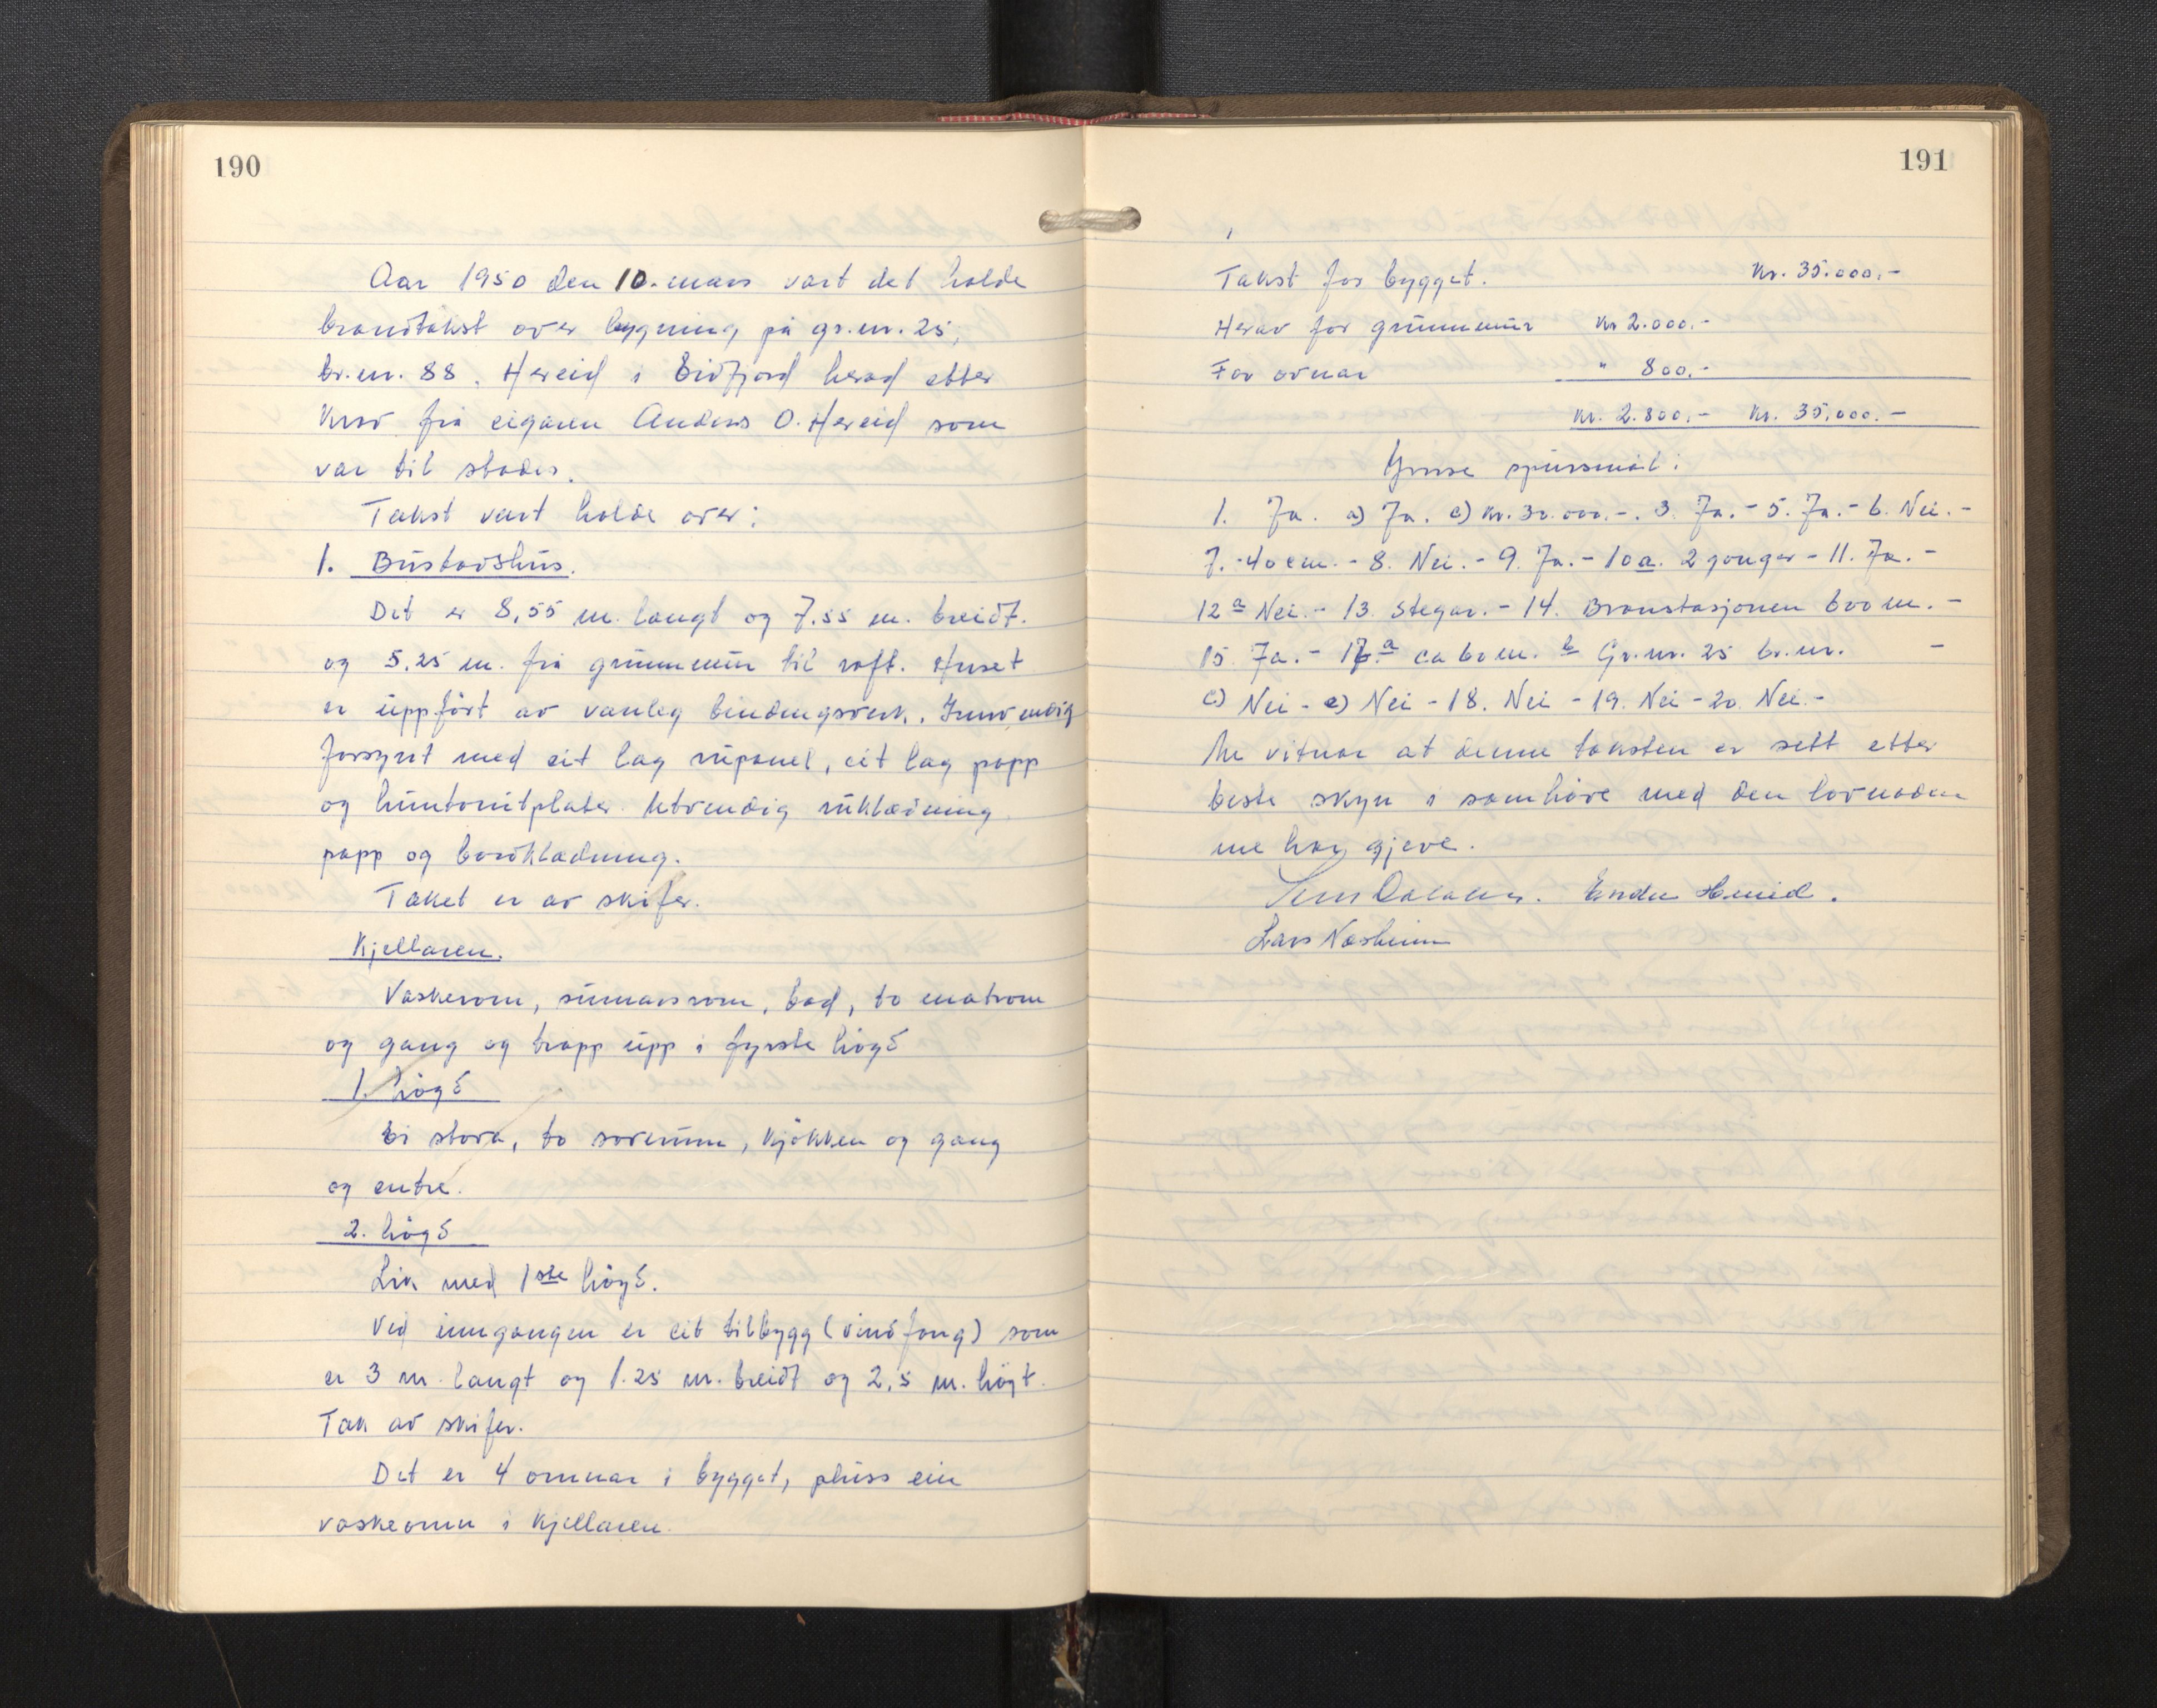 190
Aar 1950 den 10. mars vart det halde
brandtakst over bygning på gr.nr. 25,
br.nr. 88, Hereid i Eidfjord herad etter
krav frå eigaren Anders O. Hereid som
var til stades.
Takst vart halde over:
1. Bustadshus.
Det er 8,55 m. langt og 7.55 m. breidt.
og 5.25 m. frå grunnmur til raft. Huset
er uppført av vanleg bindingsverk. Innvendig
forsynt med eit lag rupanel, eit lag papp
og huntonitplater. Utvendig rukledning
papp og bordkledning.
Taket er av skifer.
Kjellaren.
Vaskerom, sumarsrom, bad, to matrom
og gang og trapp upp i fyrste høgd
1. høgd
Ei stova, to soverum, kjøkken og gang
og entre.
2. høgd
Lik med 1ste høgd.
Ved inngangen er eit tilbygg (vindfang) som
er 3 m. langt og 1.25 m. breidt og 2,5 m. høgt.
Tak av skifer.
Det er 4 omnar i bygget, pluss ein
vaskeomn i kjellaren.
191
Takst for bygget. Kr. 35.000,-
Herav for grunnmur Kr 2.000.-
For ovnar " 800.-
Kr. 2.800,- Kr. 35.000.-
Ymse spursmål:
1. Ja. a) Ja. c) Kr. 30.000.-. 3. Ja.- 5. Ja.- 6. Nei.-
7. 40 cm.- 8. Nei.- 9. Ja.- 10a. 2 gonger - 11. Ja.-
12a Nei.- 13. Stegar.- 14. Branstasjonen 600 m.-
15. Ja.- 17.a ca 60 m. b Gr.nr. 25 br.nr. -
c) Nei - e) Nei - 18. Nei - 19. Nei - 20. Nei.-
Me vitnar at denne taksten er sett etter
beste skyn i samhøve med den lovnaden
me hav gjeve.
Endre Hereid.
Lars Næsheim